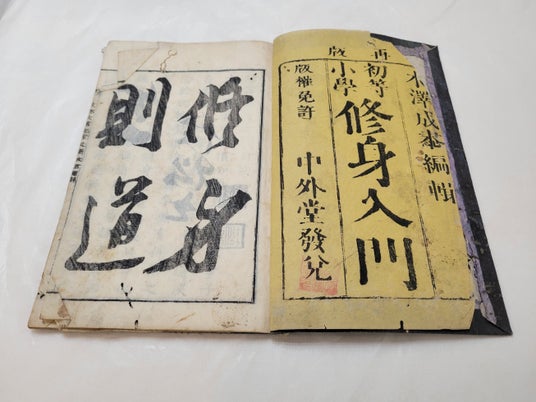 再版
木澤成肅編輯
初等
小學
修身入門
版權免許
中外堂發兌
脩身
則道